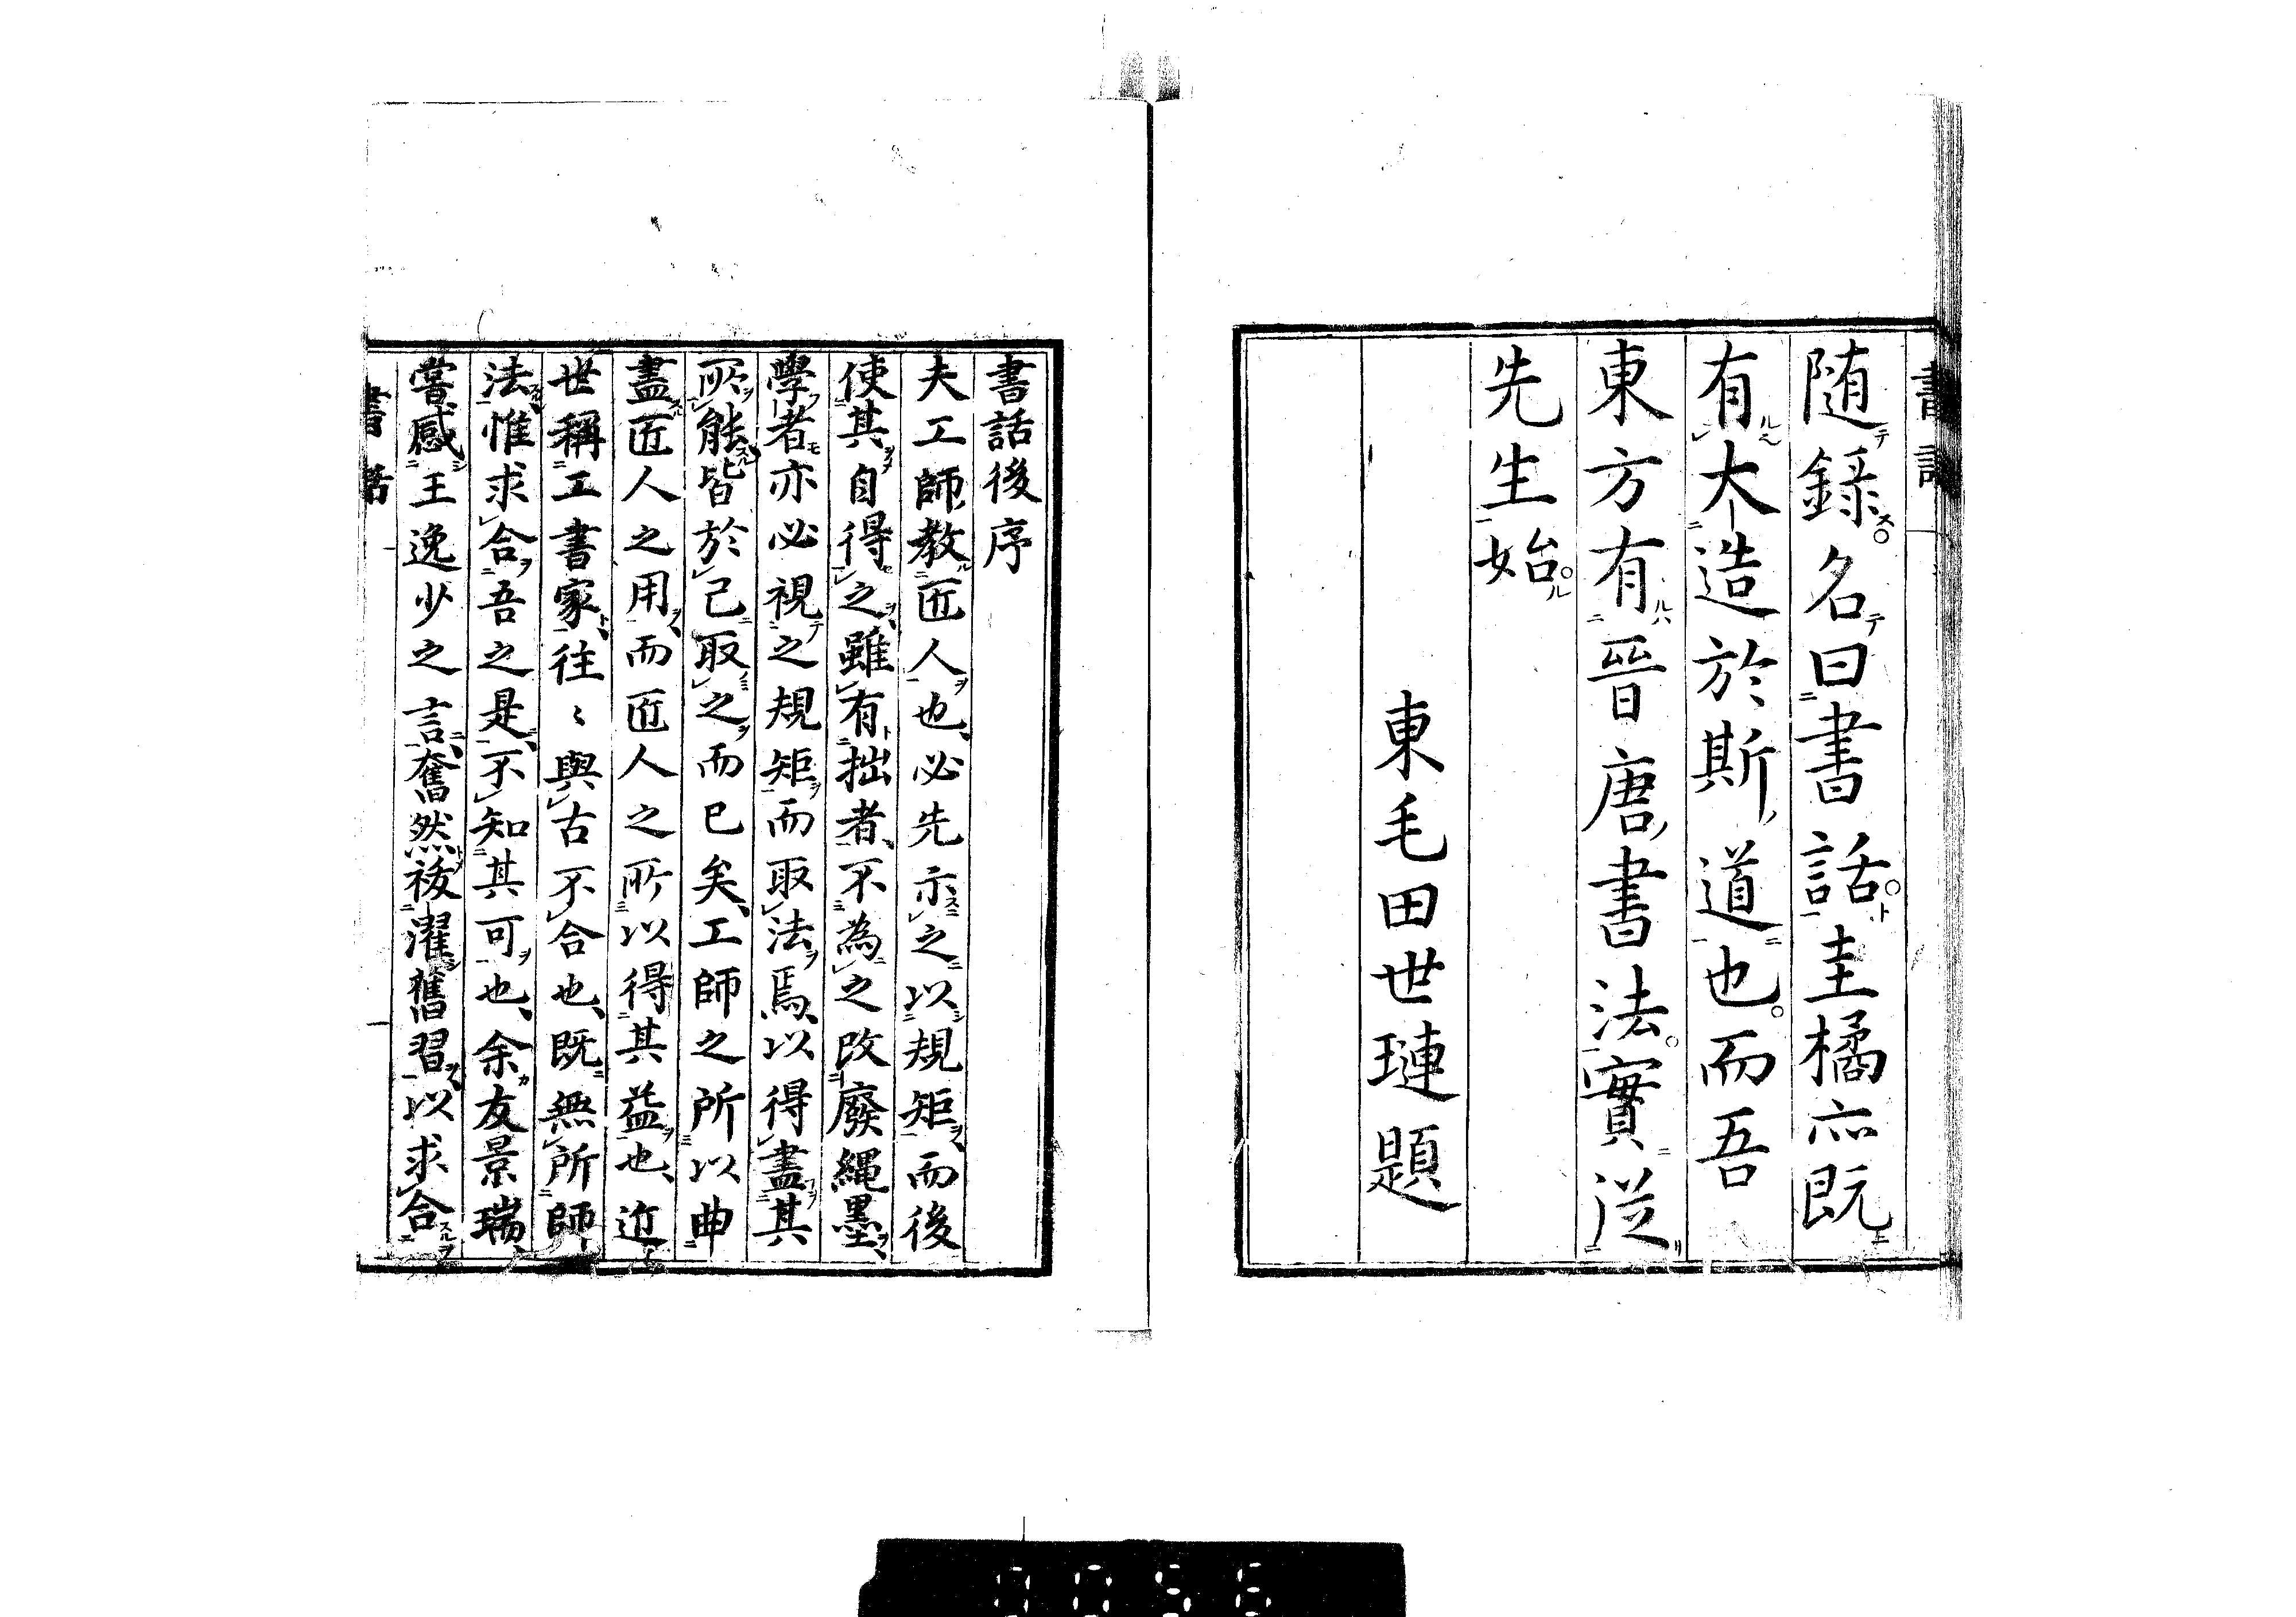 随錄名曰書話圭橘亦既
有大造於斯道也而吾
東方有晉唐書法實從
先生始
東毛田世璉題
書話後序
夫工師教匠人也必先示之以規矩而後
使其自得之雖有拙者不為之改廢繩墨
學者亦必視之規矩而取法焉以得盡其
所能皆於己取之而已矣工師之所以曲
盡匠人之用而匠人之所以得其益也近
世稱工書家往〻與古不合也既無所師
法惟求合吾之是不知其可也余友景瑞
嘗感王逸少之言奮然後濯舊習以求合
書話